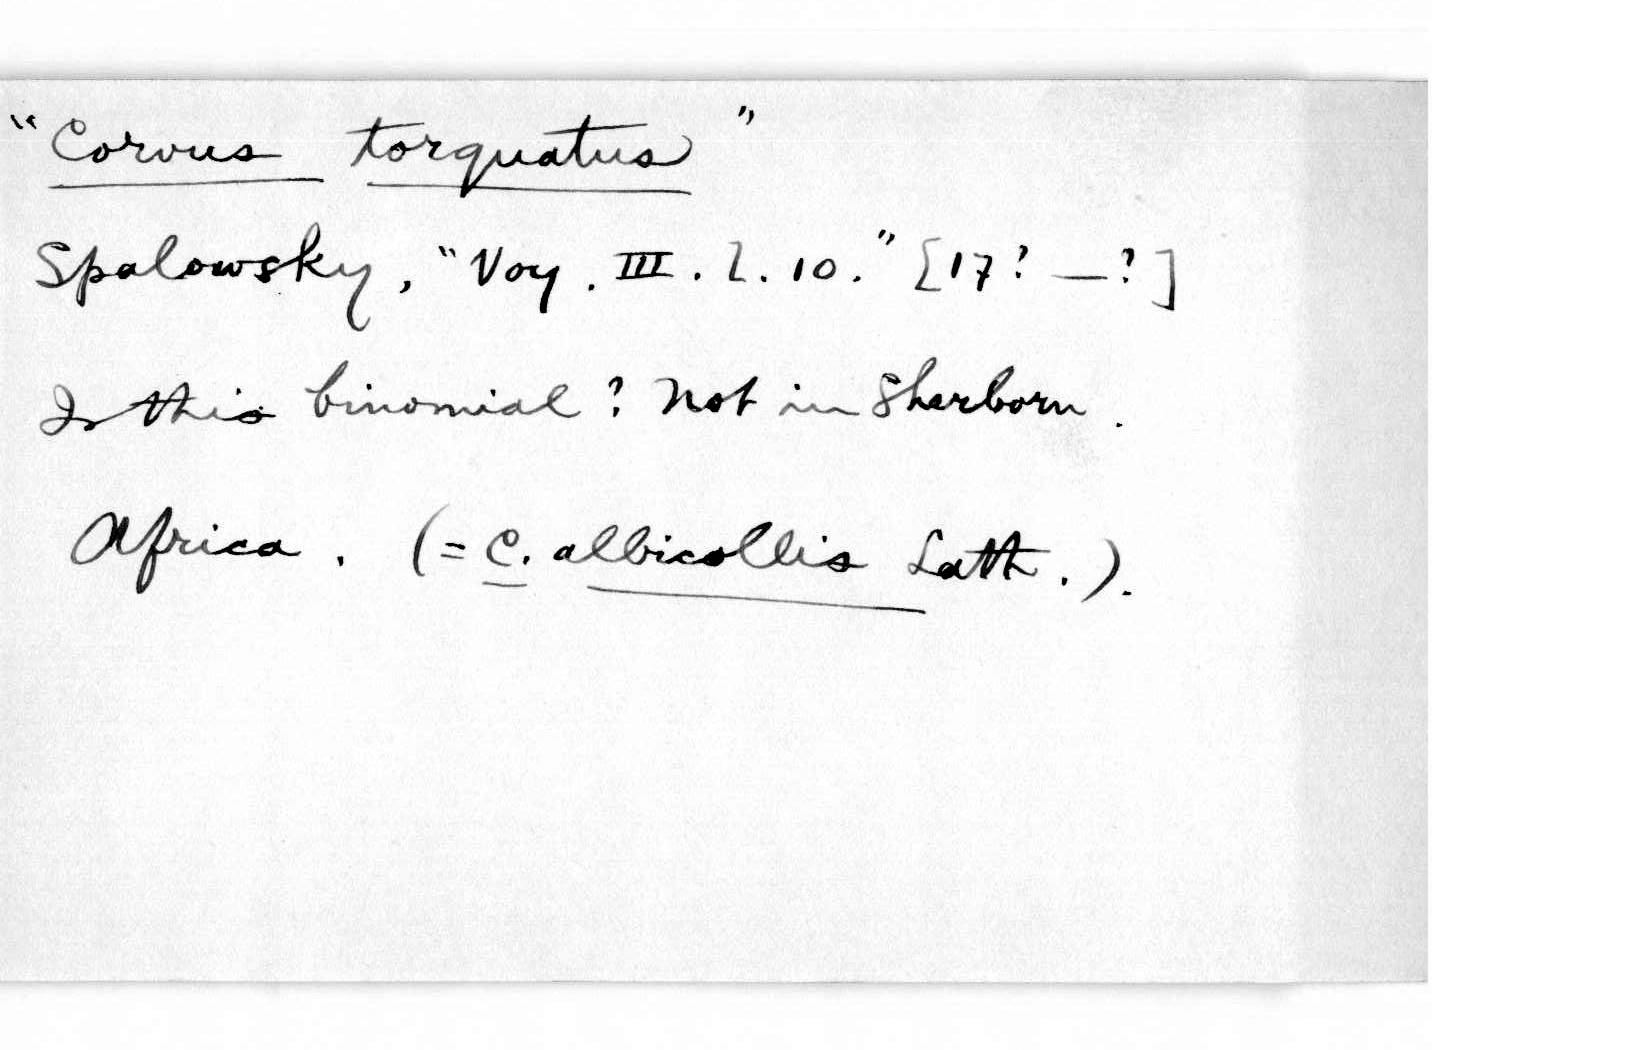 "Corvus torquatus"
Spalowsky, "Voy. III. t. 10." [17?—?]
Is this binomial? Not in Sherborn.
Africa. (= C. albicollis Lath.).